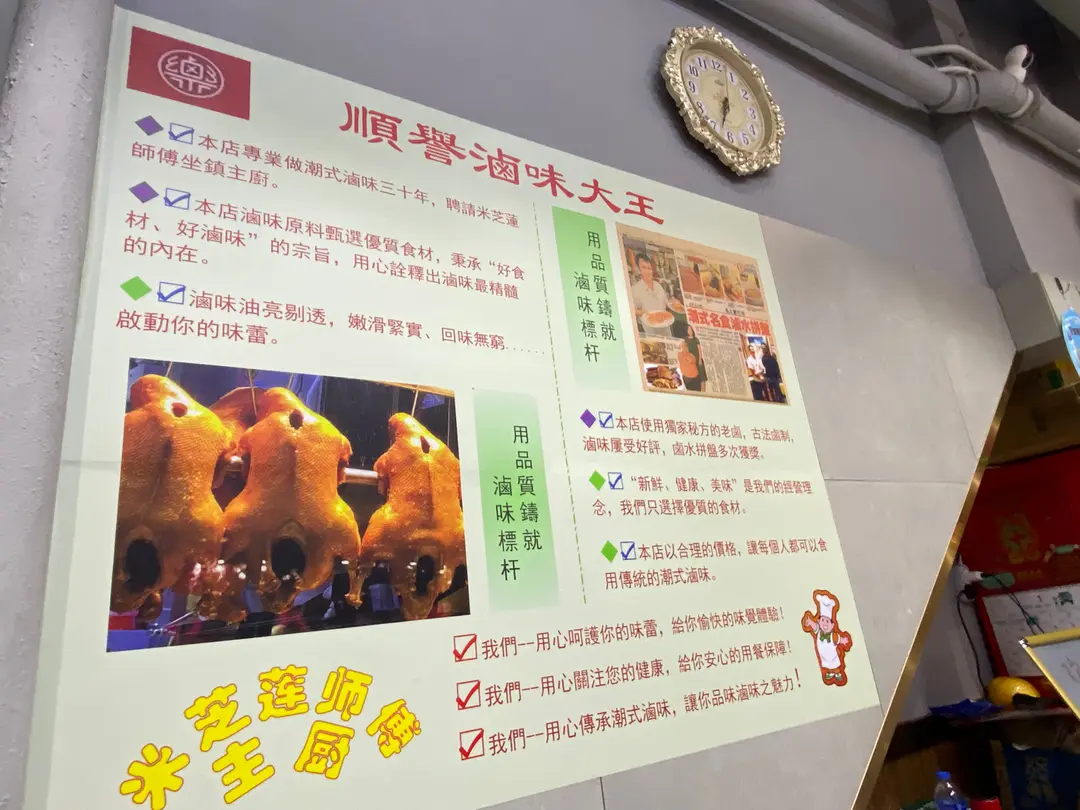 滷
順譽滷味大王
本店專業做潮式滷味三十年，聘請米芝蓮
師傅坐鎮主廚。
本店滷味原料甄選優質食材，秉承“好食
材、好滷味”的宗旨，用心詮釋出滷味最精髓
的內在。
滷味油亮剔透，嫩滑緊實、回味無窮......
啟動你的味蕾。
用品質鑄就
滷味標杆
用品質鑄就
滷味標杆
潮式名食滷水拼盤
本店使用獨家秘方的老鹵，古法鹵制，
滷味屢受好評，鹵水拼盤多次獲獎。
“新鮮、健康、美味”是我們的經營理
念，我們只選擇優質的食材。
本店以合理的價格，讓每個人都可以食
用傳統的潮式滷味。
我們--用心呵護你的味蕾，給你愉快的味覺體驗！
我們--用心關注您的健康，給你安心的用餐保障！
我們--用心傳承潮式滷味，讓你品味滷味之魅力！
米芝莲师傅
主厨
12
1
2
3
4
5
6
7
8
9
10
11